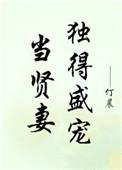 独得盛宠
当贤妻
——仃晨